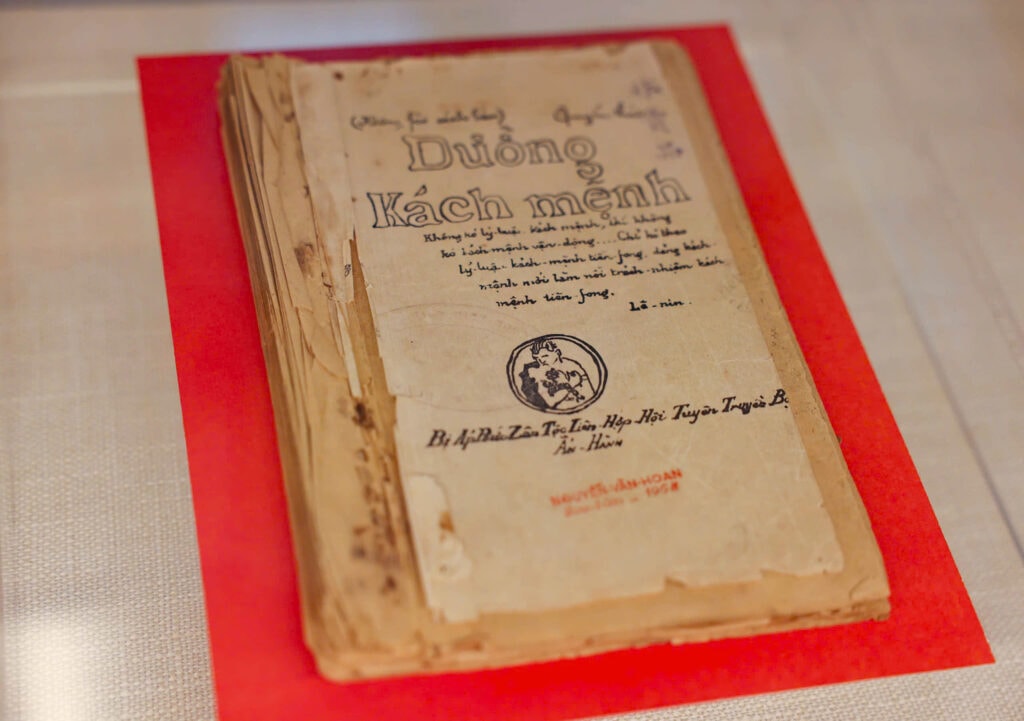 Đường
Kách mệnh
Không kó lý luận kách mệnh, thì không
kó kách mệnh vận-động.... Chỉ kó theo
lý luận kách-mệnh tiền fong, đảng kách
mệnh mới làm nổi trách-nhiệm kách
mệnh tiền fong.
Lê-nin.
Bị Áp Bức Zân Tộc Liên-Hợp-Hội Tuyên Truyền Bộ
Ấn-Hành
NGUYỄN-VĂN-HOAN
1968